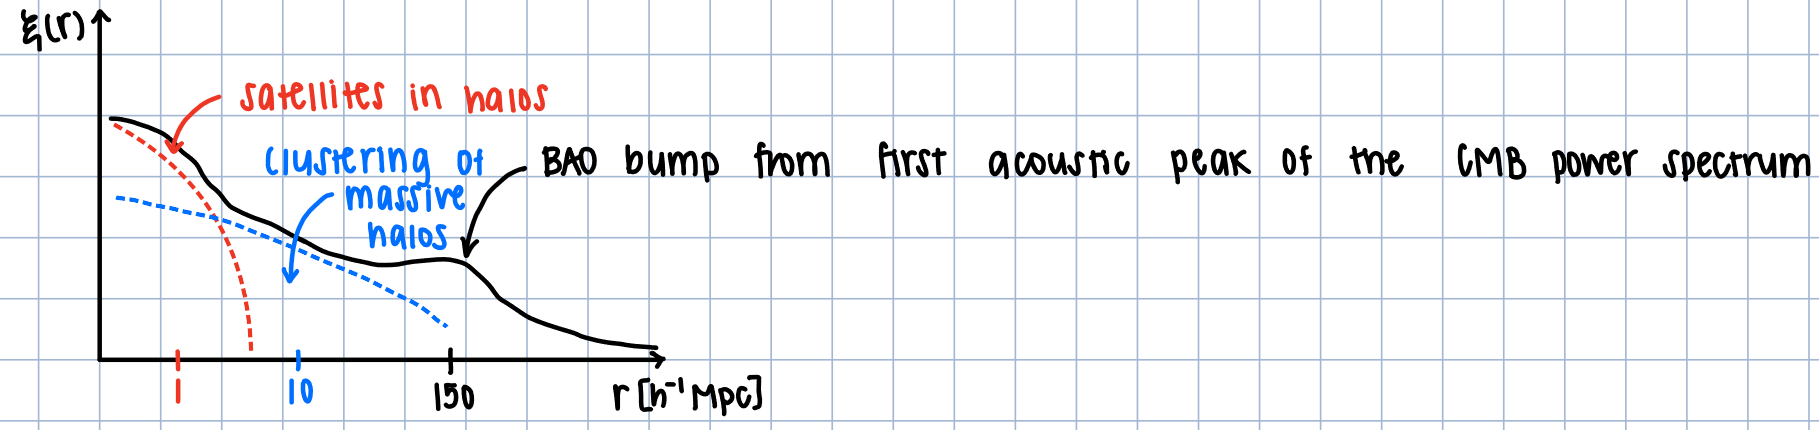 ξ(r)
satellites in halos
clustering of
massive
halos
BAO bump from first acoustic peak of the CMB power spectrum
1
10
150
r [h⁻¹ Mpc]